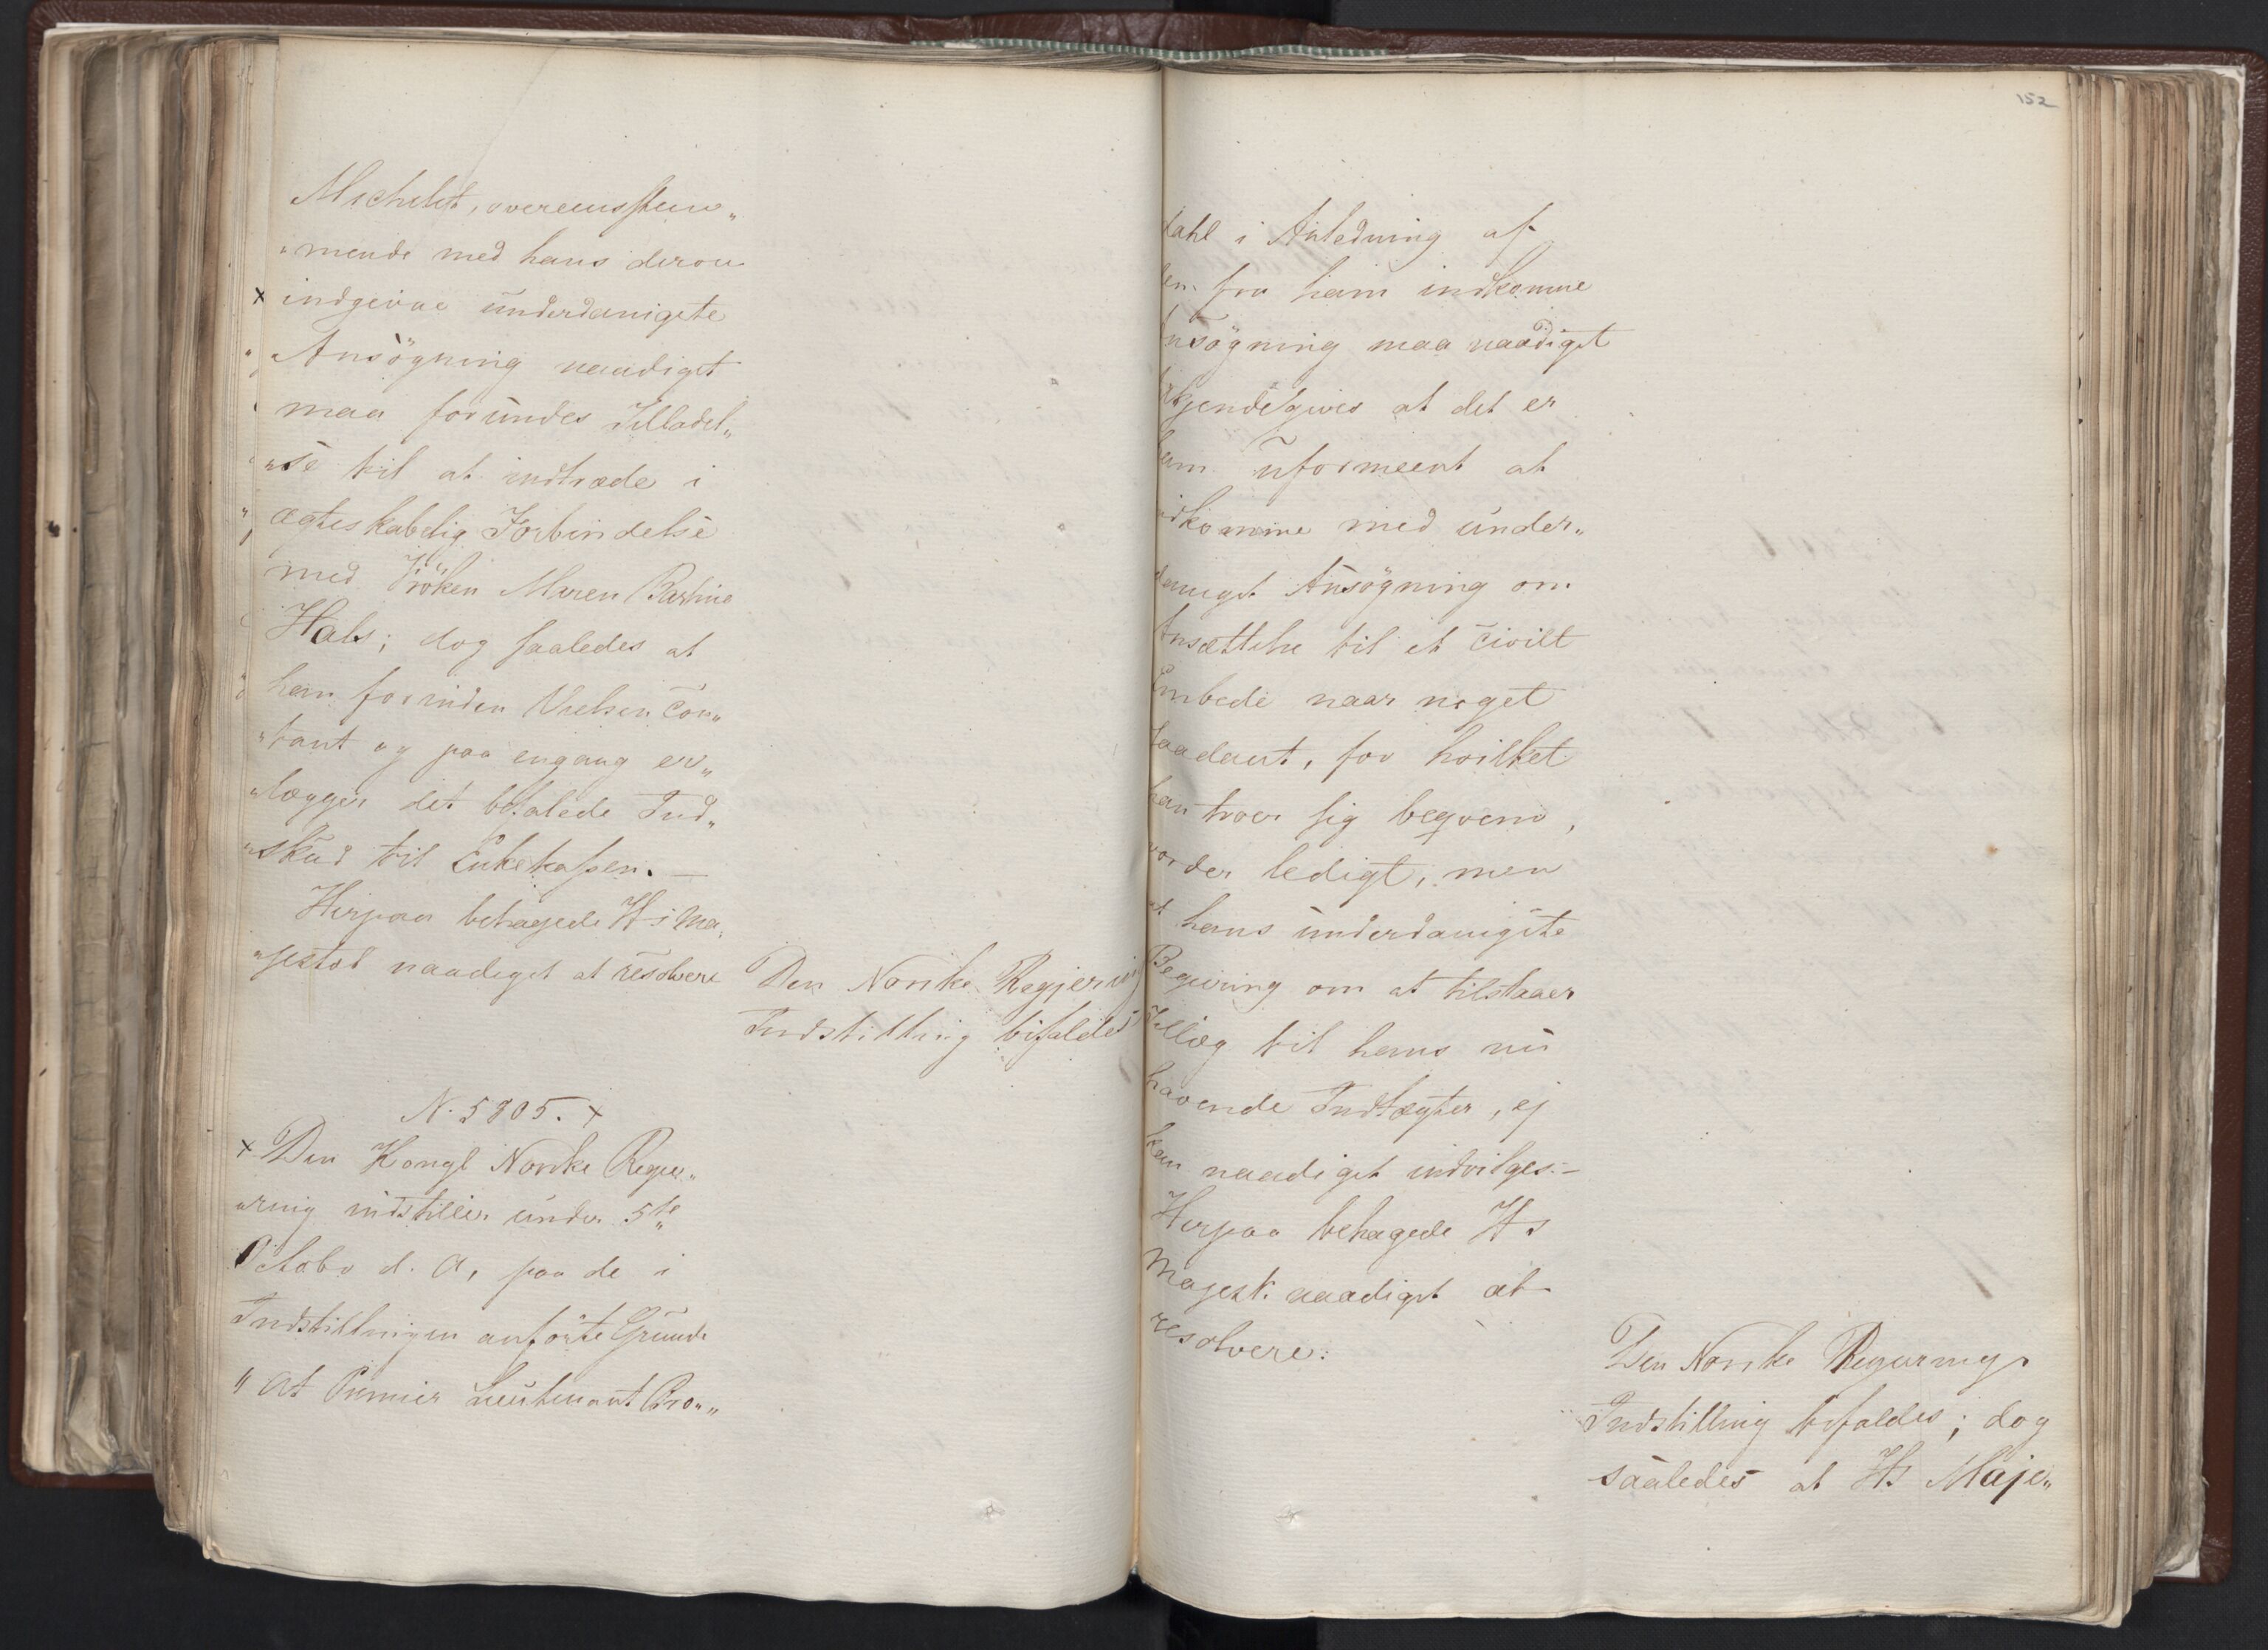 Michelet, overeensstem„
„mende med hans derom
x indgivne underdanigste
Ansögning naadigst
maa forundes Tilladel„
„se til at indtræde i
ægteskabelig Forbindelse
med Fröken Maren Bartine
Hals; dog saaledes at
han forinden Vielsen con„
„tant og paa engang er„
„lægger det befalede Ind„
„skud til Enkekassen. —
Herpaa behagede H: Ma„
„jestæt naadigst at resolvere
Den Norske Regjering
Indstilling bifaldes
N. 5805. x
x Den Kongl Norske Regje„
„ring indstiller under 5te
Octobr d. A, paa de i
Indstillingen anförte Grunde
„ At Premier Lieutenant Bro„„
152
dahl i Anledning af
den fra ham indkomne
Ansögning maa naadigst
tilkjendegives at det er
ham uformeent at
indkomme med under„
danigst Ansögning om
Ansættelse til et civilt
Embede naar noget
saadant, for hvilket
han troer sig beqvem,
vorder ledigt, men
at hans underdanigste
Begjering om at tilstaaes
Tillæg til hans nu
havende Indtægter, ej
kan naadigst indvilges. –
Herpaa behagede Hs
Majest: naadigst at
resolvere:
Den Norske Regjerings
Indstilling bifaldes; dog
saaledes at Hs Maje„